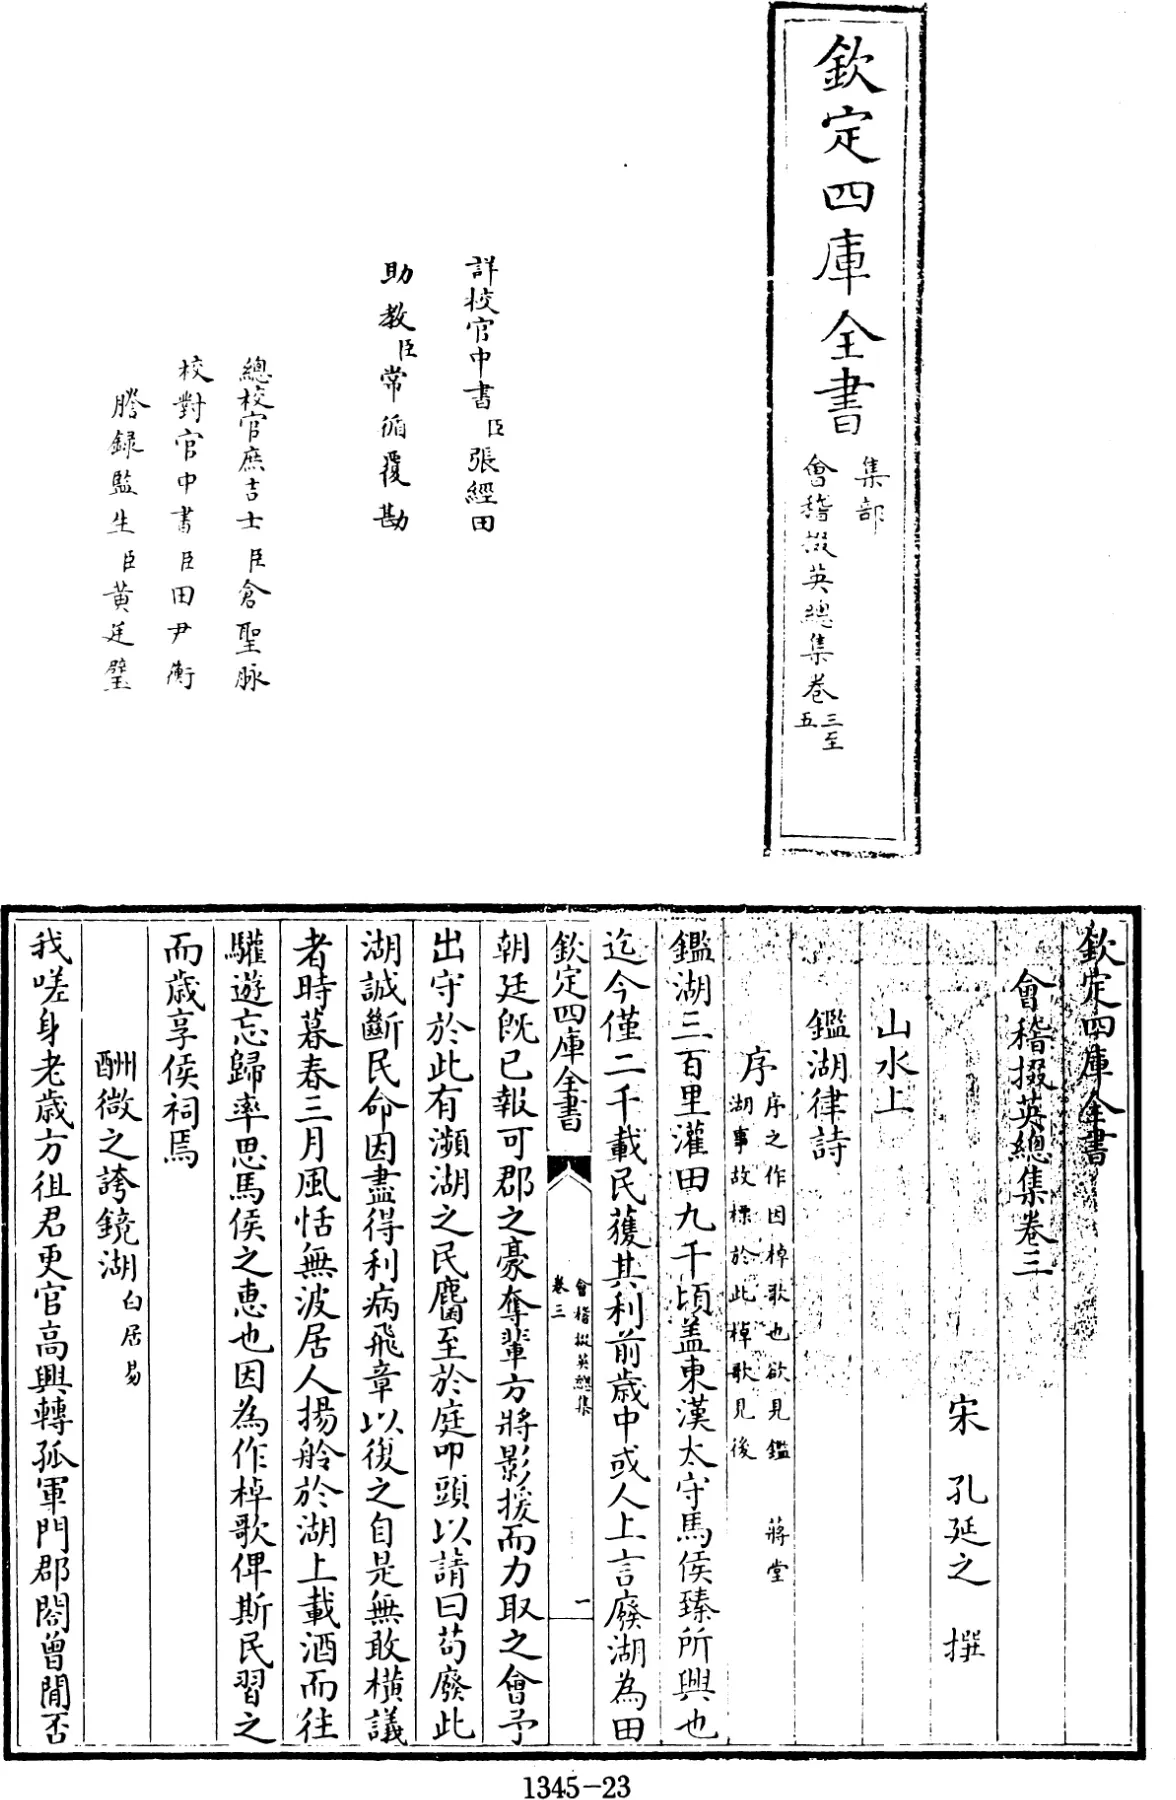 欽定四庫全書
集部
會稽掇英總集卷三至五
詳校官中書臣張經田
助教臣常循覆勘
總校官庶吉士臣倉聖脉
校對官中書臣田尹衡
謄録監生臣黄廷璧
欽定四庫全書
會稽掇英總集卷三
宋 孔延之 撰
山水上
鑑湖律詩
序 序之作因棹歌也欲見鑑湖事故標於此棹歌見後 蔣堂
鑑湖三百里灌田九千頃盖東漢太守馬侯臻所興也
迄今僅二千載民獲其利前歲中或人上言廢湖為田
欽定四庫全書
會稽掇英總集
卷三
一
朝廷既已報可郡之豪奪輩方將影援而力取之會予
出守於此有瀕湖之民麕至於庭叩頭以請曰苟廢此
湖誠斷民命因盡得利病飛章以復之自是無敢橫議
者時暮春三月風恬無波居人揚舲於湖上載酒而往
驩遊忘歸率思馬侯之恵也因為作棹歌俾斯民習之
而歲享侯祠焉
酬微之誇鏡湖 白居易
我嗟身老歲方徂君更官高興轉孤軍門郡閤曾閒否
1345-23